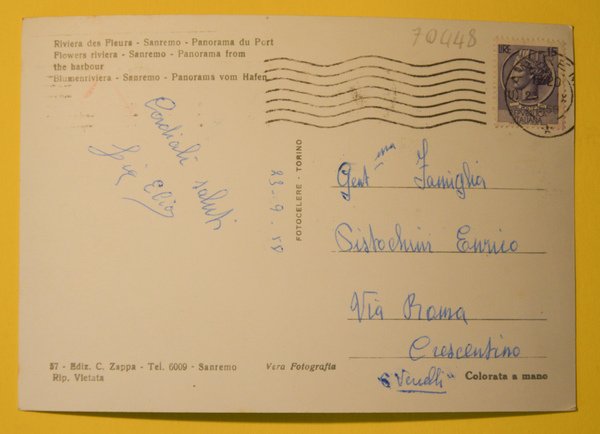 70448
Riviera des Fleurs - Sanremo - Panorama du Port
Flowers riviera - Sanremo - Panorama from
the harbour
Blumenriviera - Sanremo - Panorama vom Hafen
LIRE 15
REPVBBLICA
ITALIANA
Cordiali saluti
Elio
23-9-58
FOTOCELERE - TORINO
Gent ma Famiglia
Sistochini Enrico
Via Roma
Crescentino
"Vercelli"
57 - Ediz. C. Zappa - Tel. 6009 - Sanremo
Rip. Vietata
Vera Fotografia
Colorata a mano